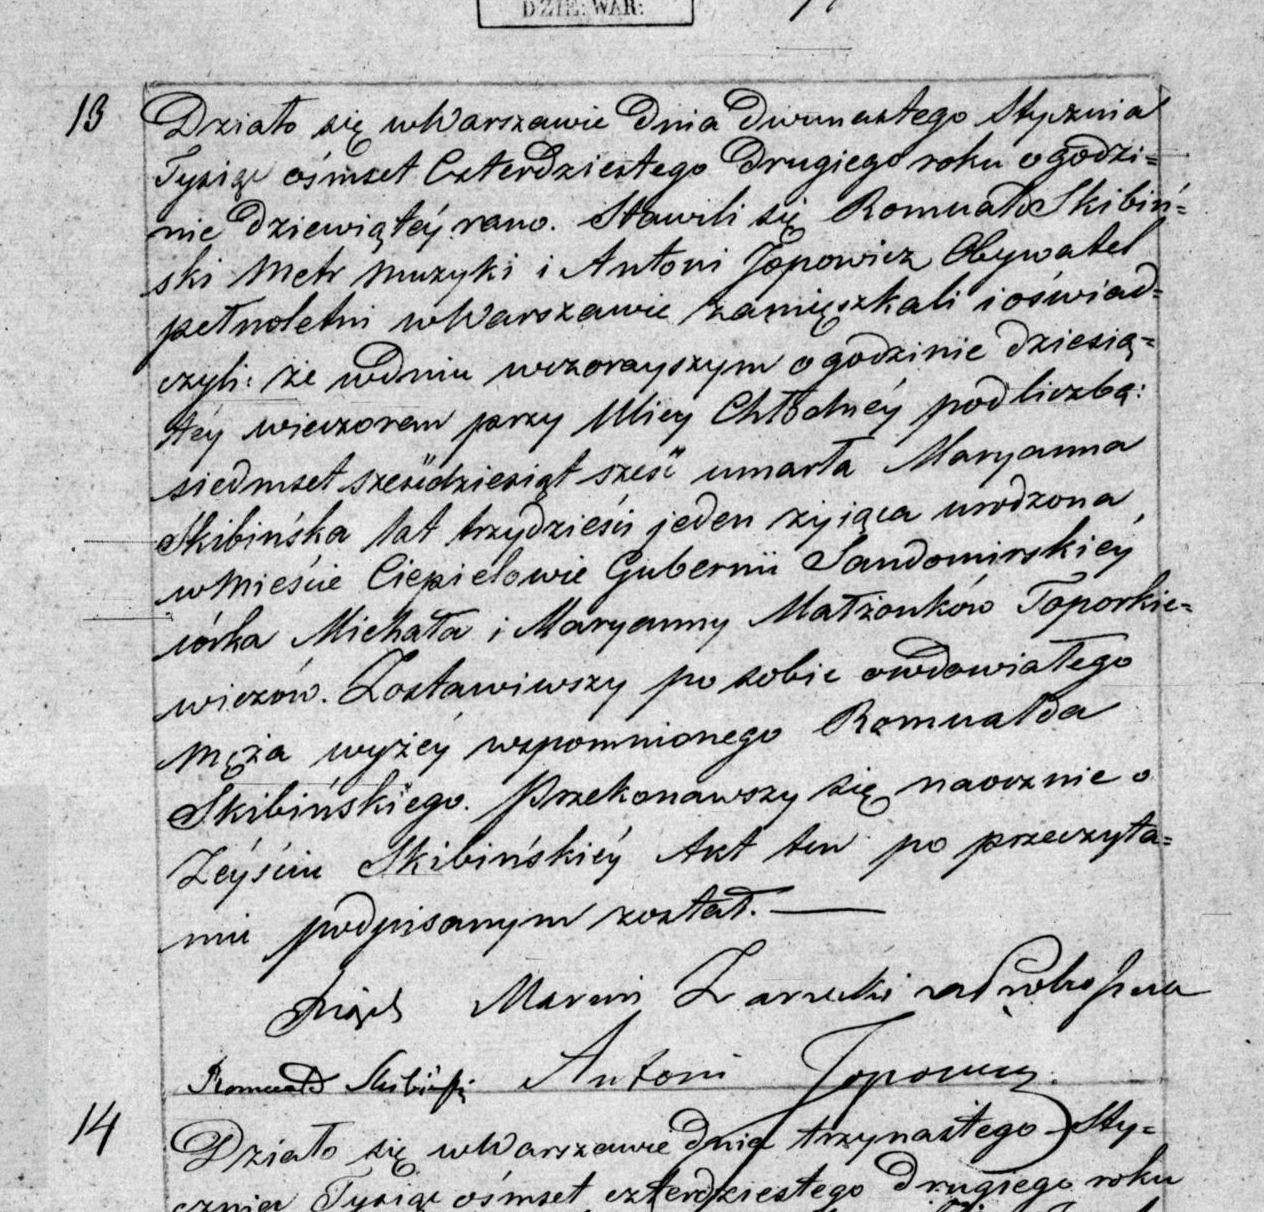 DZIE: WAR:
13
Działo się w Warszawie Dnia Dwunastego Stycznia
Tysiąc ośmset Czterdziestego Drugiego roku o godzi=
nie dziewiątéy rano. Stawili się Romuald Skibiń=
ski Metr Muzyki i Antoni Jopowicz Obywatel
pełnoletni w Warszawie zamięszkali i oświad=
czyli: że w dniu wczorayszym o godzinie dziesią=
téy wieczorem przy Ulicy Chłodnéy pod liczbą:
siedmset sześćdziesiąt sześć umarła Maryanna
Skibińska lat trzydzieści jeden żyiąca urodzona
w Mieście Ciepielowie Gubernii Sandomirskiéy
córka Michała i Maryanny Małżonków Toporkie=
wiczów. Zostawiwszy po sobie owdowiałego
Męża wyżéy wspomnionego Romualda
Skibińskiego. Przekonawszy się naocznie o
Zéyściu Skibińskiéy Akt ten po przeczyta=
niu podpisanym został. —
Marcin Zarzecki
Romuald Skibiński Antoni Jopowicz
14
Działo się w Warszawie dnia trzynastego Sty=
cznia Tysiąc ośmset czterdziestego drugiego roku